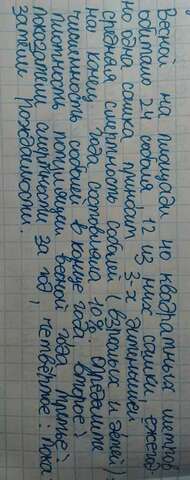 Весной на площади 40 квадратных метров
обитало 24 соболя, 12 из них самки, ежегод-
но одна самка приносит 3-х детёнышей
средняя смертность соболей (взрослых и детей)
на конец года составила 10%. Определите
численность соболей в конце года, второе:
плотность популяции весной года, третье:
показатели смертности за год, четвёртое: пока-
затели рождаемости.